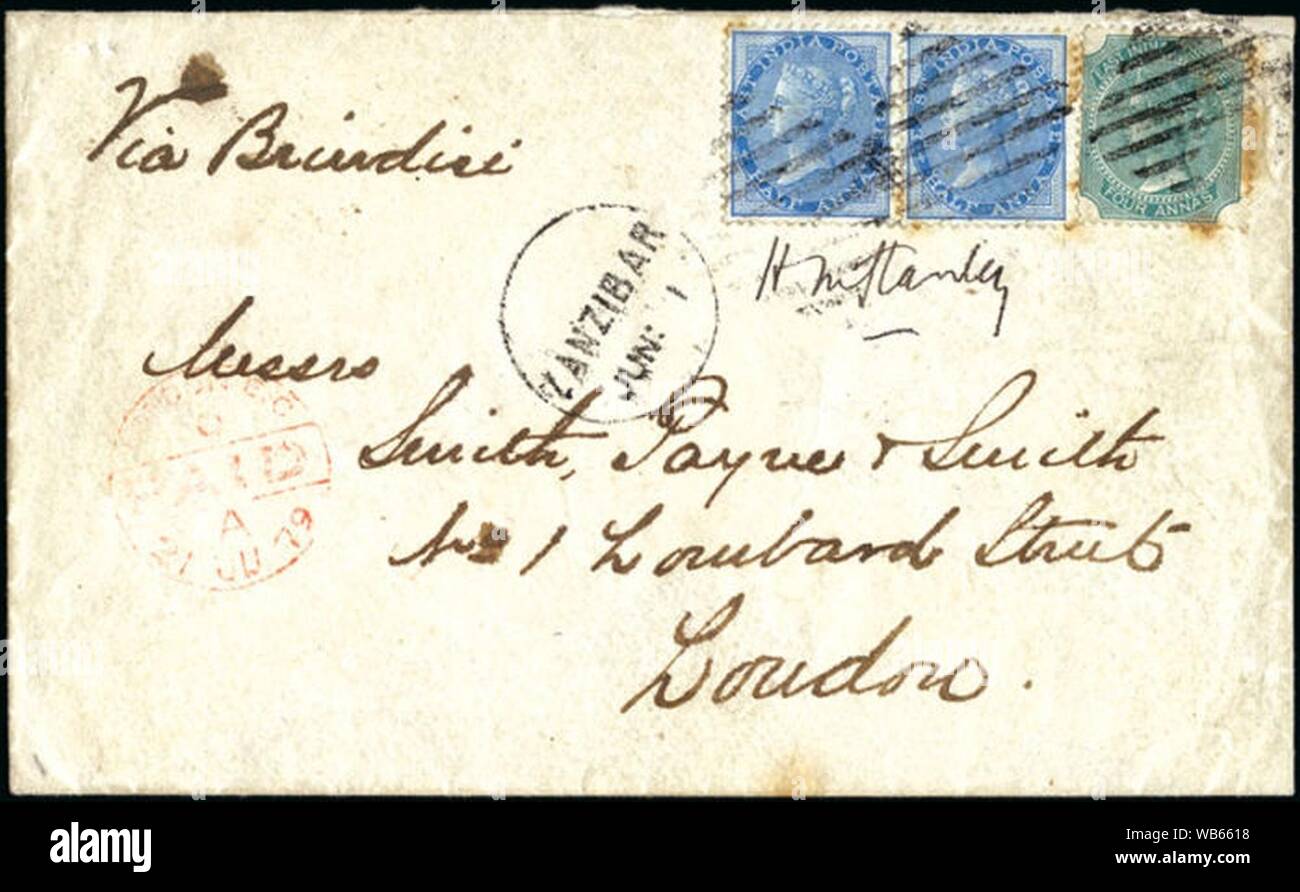 Via Brindisi
EAST INDIA POSTAGE
HALF ANNA
EAST INDIA POSTAGE
HALF ANNA
FOUR ANNAS
H M Stanley
ZANZIBAR
JUN: 1
Messrs
Smith, Payne & Smith
No 1 Lombard Street
London.
PAID
A
21 JU 79
alamy
Image ID: WB6618
www.alamy.com